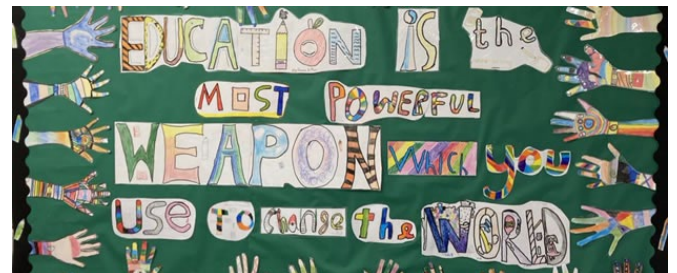 EDUCATION iS the
MOST POWERFUL
WEAPON WHiCH you
USE TO change the WORLD